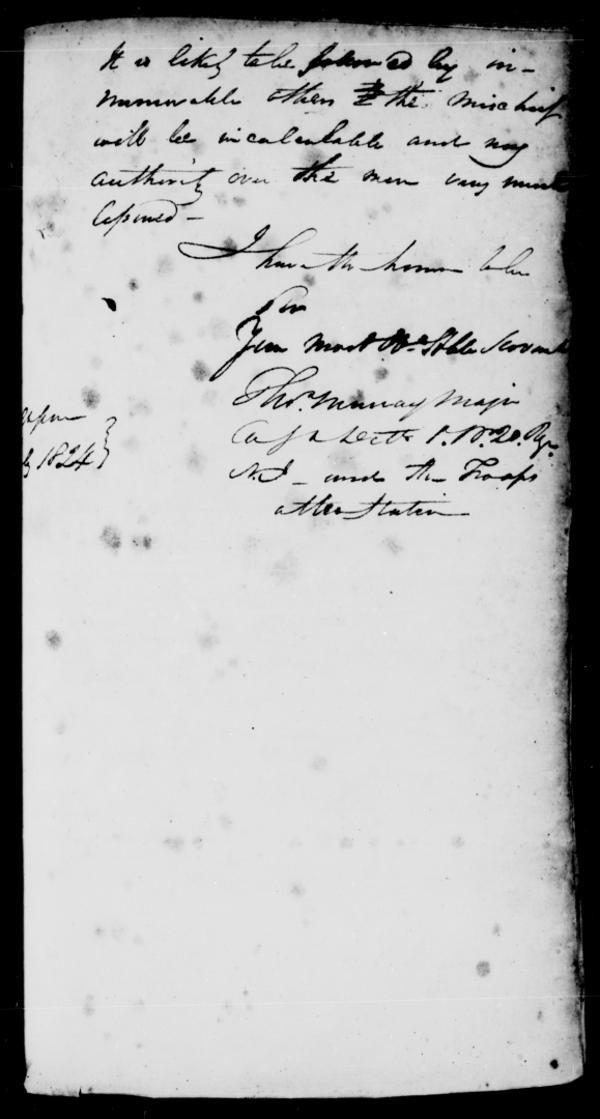 It is likely to be followed by in-
numerable others & the mischief
will be incalculable and my
authority over the men very much
lessened -
I have the honor to be
Sir
Your most Obt. Hble Servant
Thos. Murray Major
1. Bn. 20. Regt.
N.I - and the Troops
at the Station
1824